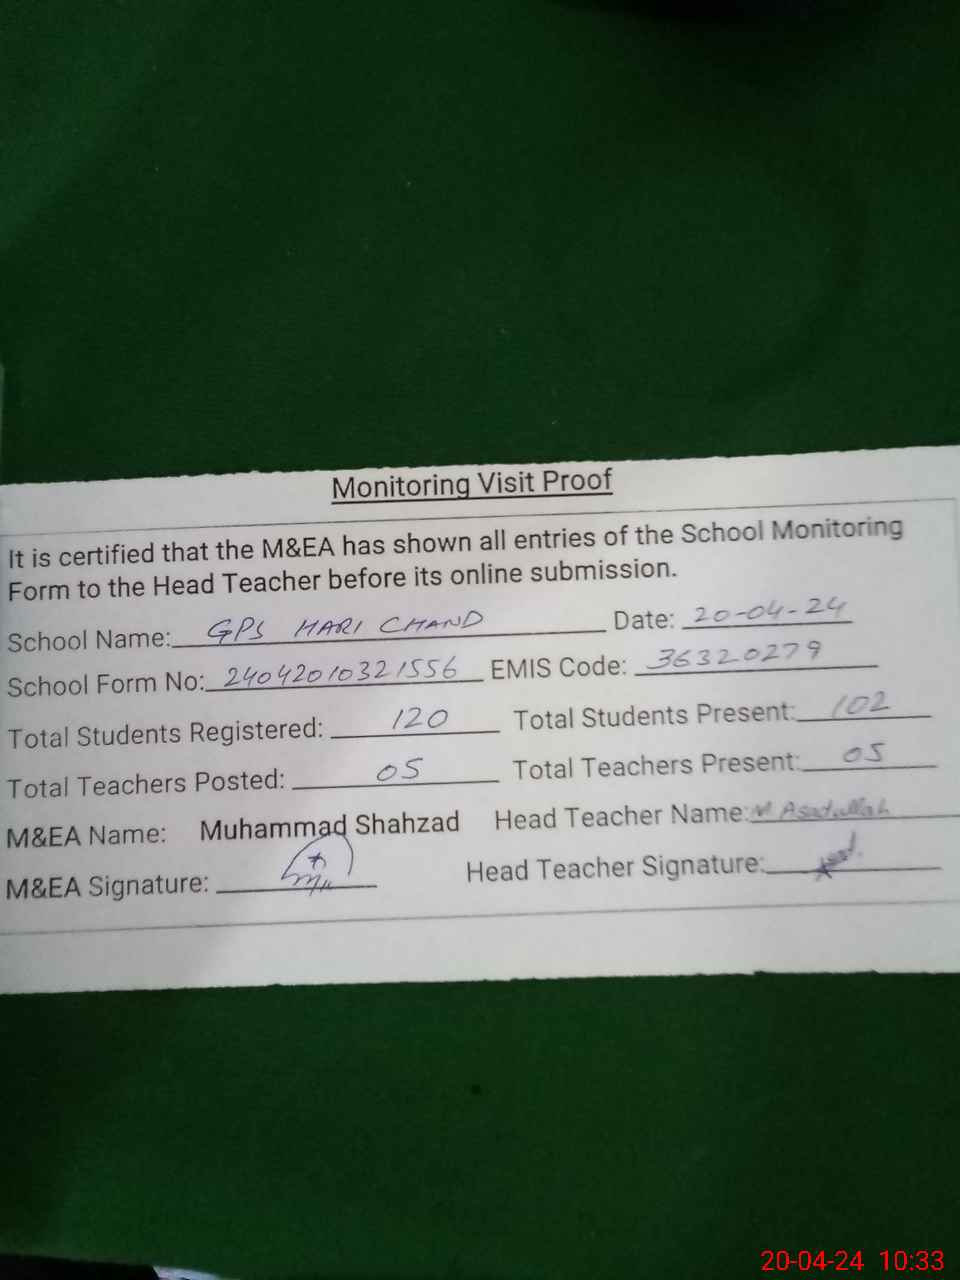 Monitoring Visit Proof
It is certified that the M&EA has shown all entries of the School Monitoring
Form to the Head Teacher before its online submission.
School Name: GPS HARI CHAND Date: 20-04-24
School Form No: 24042010321556 EMIS Code: 36320279
Total Students Registered: 120 Total Students Present: 102
Total Teachers Posted: 05 Total Teachers Present: 05
M&EA Name: Muhammad Shahzad Head Teacher Name: M Asadullah
M&EA Signature: Head Teacher Signature:
20-04-24 10:33